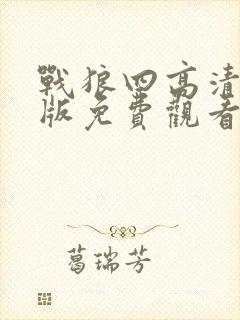 戰狼四高清
版免費觀看
葛瑞芳